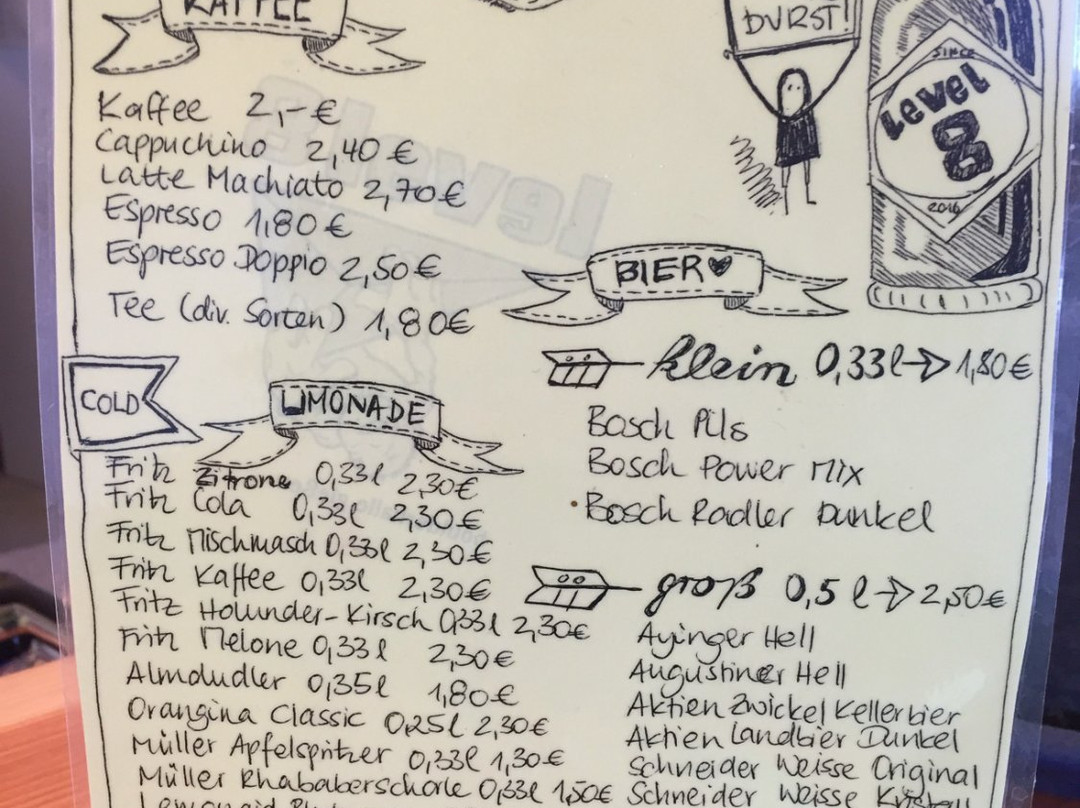 KAFFEE
Kaffee 2,-€
Cappuchino 2,40€
Latte Machiato 2,70€
Espresso 1,80€
Espresso Doppio 2,50€
Tee (div. Sorten) 1,80€
COLD
LIMONADE
Fritz Zitrone 0,33l 2,30€
Fritz Cola 0,33l 2,30€
Fritz Mischmasch 0,33l 2,30€
Fritz Kaffee 0,33l 2,30€
Fritz Holunder-Kirsch 0,33l 2,30€
Fritz Melone 0,33l 2,30€
Almdudler 0,35l 1,80€
Orangina Classic 0,25l 2,30€
Müller Apfelspritzer 0,33l 1,30€
Müller Rhababerschorle 0,33l 1,50€
DURST!
SINCE
Level
8
2016
BIER
klein 0,33l 1,80€
Bosch Pils
Bosch Power Mix
Bosch Radler Dunkel
groß 0,5l 2,50€
Ayinger Hell
Augustiner Hell
Aktien Zwickel Kellerbier
Aktien Landbier Dunkel
Schneider Weisse Original
Schneider Weisse